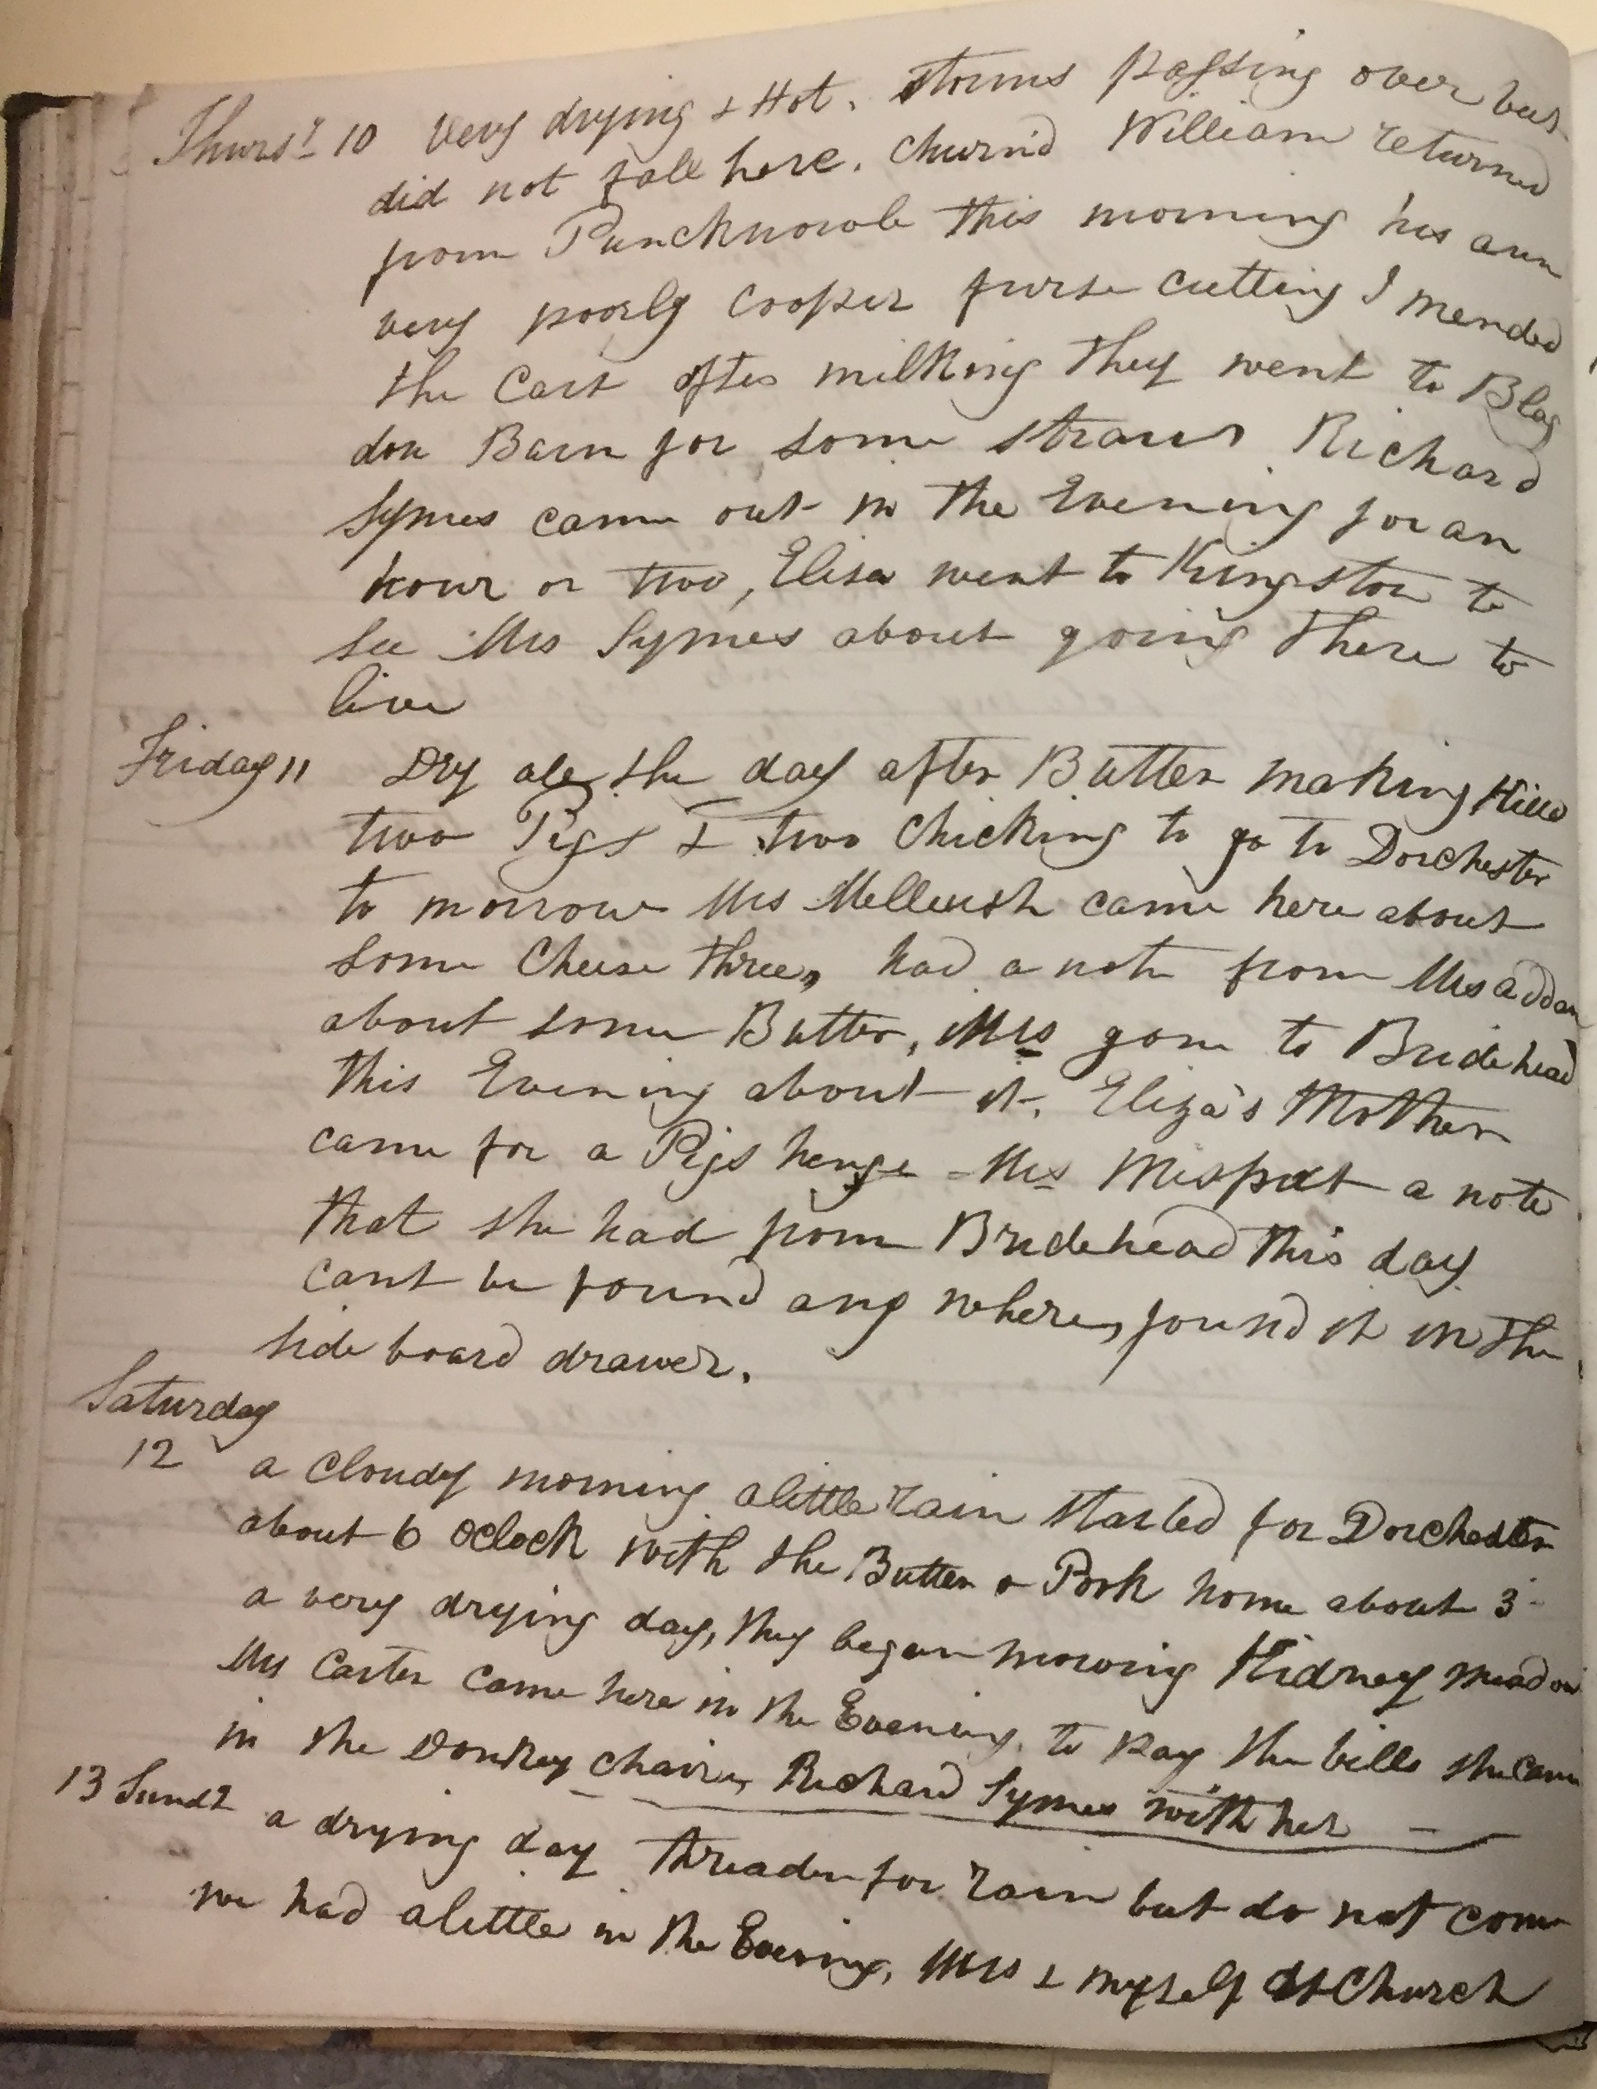 Thursy 10 Very drying & Hot. storms passing over but
did not fall here. Churn'd William returned
from Puncknowle this morning his arm
very poorly Cooper furse cutting I mended
the Cart after milking they went to Blag
don Barn for some straw Richard
Symes came out in the Evening for an
hour or two, Elisa went to Kingston to
see Mrs Symes about going there to
live
Friday 11 Dry all the day after Butter making Kill'd
two Pigs & two Chicking to go to Dorchester
to morrow Mrs Mellewsh came here about
some Cheese three, had a note from Mrs addam
about some Butter, Mrs gone to Bridehead
this Evening about it. Eliza's Mother
came for a Pigs henge - Mrs Misput a note
that she had from Bridehead this day
cant be found any where, found it in the
side board drawer.
Saturday
12 a Cloudy morning a little rain started for Dorchester
about 6 oclock with the Butter & Pork home about 3
a very drying day, they began mowing Kidney meadow
Mrs Carter came here in the Evening to pay the bills she came
in the Donkey chaire, Richard Symes with her
13 Sundy a drying day threaden for rain but do not come
we had a little in the Evening, Mrs & myself At Church